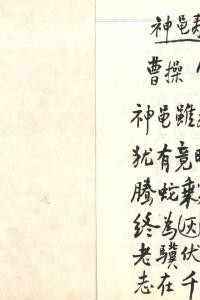 神龟
曹操
神龟雖
犹有竟
騰蛇乘
终為
老骥伏
志在千